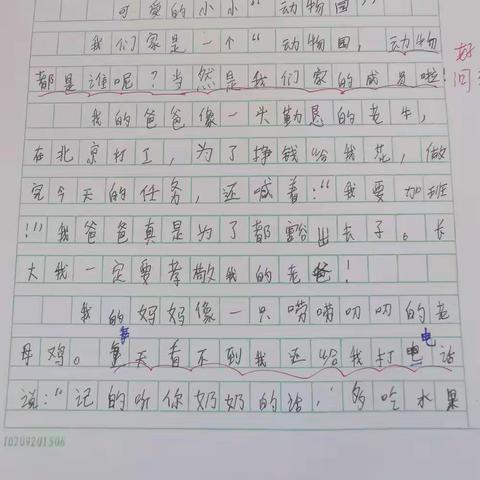 可爱的小小“动物园”
我们家是一个“动物园，动物
都是谁呢？当然是我们家的成员啦！
好
问
我的爸爸像一头勤恳的老牛，
在北京打工，为了挣钱给我花，做
完今天的任务，还喊着：“我要加班
！”我爸爸真是为了都豁出去了。长
大我一定要孝敬我的老爸！
我的妈妈像一只唠唠叨叨的老
母鸡。每天看不到我还给我打电话
说：“记的听你奶奶的话，多吃水果
10209201506